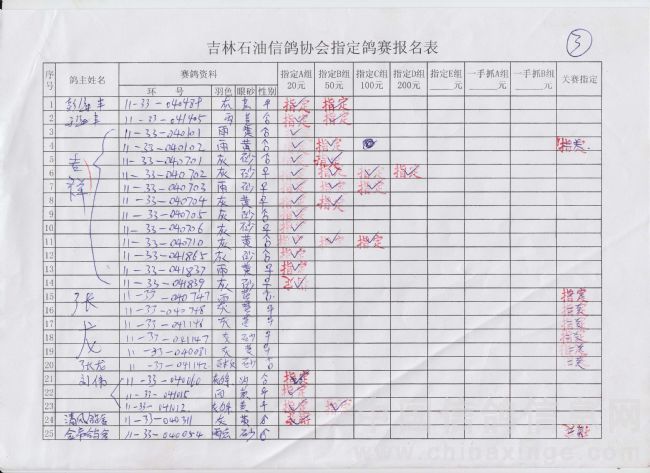 吉林石油信鸽协会指定鸽赛报名表
3
序号 鸽主姓名 赛鸽资料 指定A组 指定B组 指定C组 指定D组 指定E组 一手抓A组 一手抓B组 关赛指定
环 号 羽色 眼砂 性别 20元 50元 100元 200元 元 元 元
1 11-33-040489 灰 黄 指定 指定
2 11-33-041405 雨 黄 指定 指定
3 吉祥 11-33-040101 雨 黄 指定
4 11-33-040102 雨 黄 指定 指定 指定
5 11-33-040701 灰 砂 指定 指定
6 11-33-040702 灰 砂 指定 指定 指定 指定
7 11-33-040703 雨 砂 指定 指定 指定
8 11-33-040704 灰 黄 指定 指定
9 11-33-040705 灰 砂 指定
10 11-33-040706 灰 砂 指定
11 11-33-040710 灰 黄 指定 指定 指定
12 11-33-041865 灰 砂 指定
13 11-33-041837 雨 黄 指定
14 11-33-041839 灰 砂 指定
15 张龙 11-33-040747 雨 黄 指定
16 11-33-040748 灰 黄 指定
17 11-33-041148 灰 黄 指定
18 11-33-041147 灰 砂
19 11-33-040081 灰 黄
20 张龙 11-33-041142
21 刘伟 11-33-040060 指定
22 11-33-041015 雨 黄 指定
23 11-33-041012 黄 指定 指定
24 清风鸽舍 11-33-040311 灰 黄 指定
25 11-33-040054 砂
www.chinaxinge.com